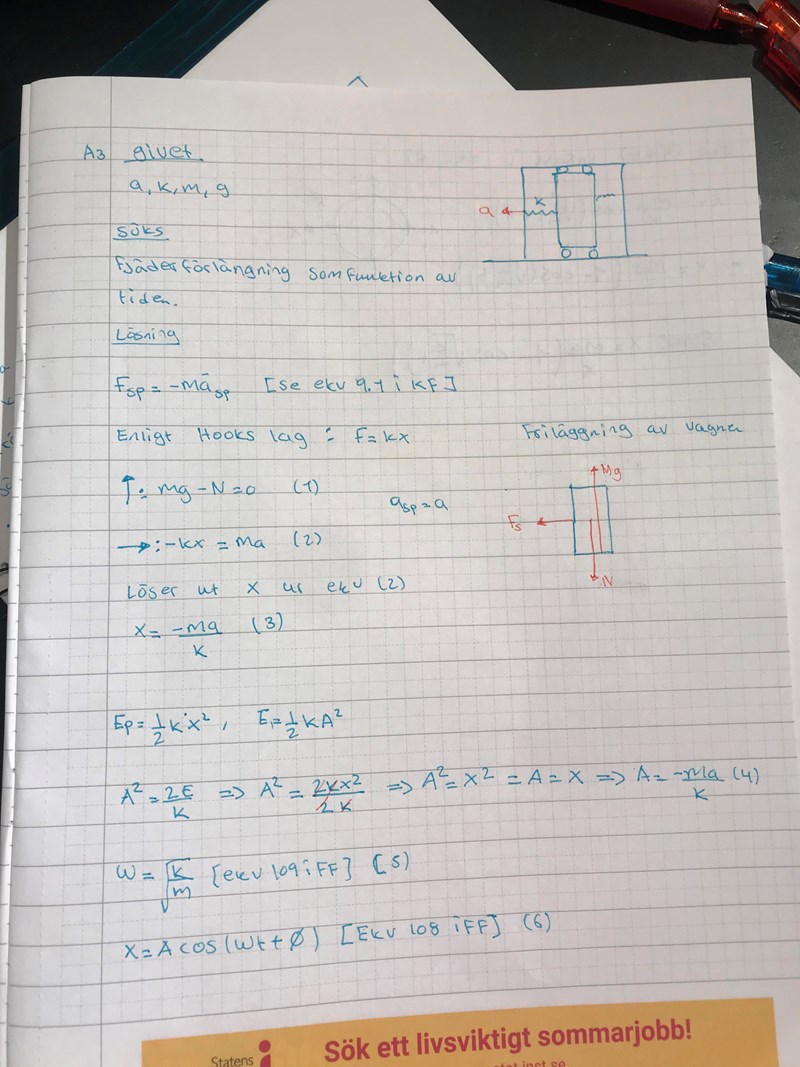 A3 givet.
a, k, m, g
söks
Fjäderförlängning som funktion av
tiden.
Lösning
k
a
F_sp = -mā_sp [se ekv 9.1 i KF]
Enligt Hooks lag : F=kx
Friläggning av vagnen
↑: mg-N=0 (1)
a_sp = a
→: -kx = ma (2)
Mg
Fs
N
Löser ut x ur ekv (2)
x = -ma/k (3)
Ep = 1/2 k x², E = 1/2 k A²
A² = 2E/k => A² = 2kx²/2k => A² = x² = A = x => A = -ma/k (4)
W = √k/m [ekv 109 i FF] (5)
x = A cos(wt + ø) [Ekv 108 i FF] (6)
Statens
Sök ett livsviktigt sommarjobb!